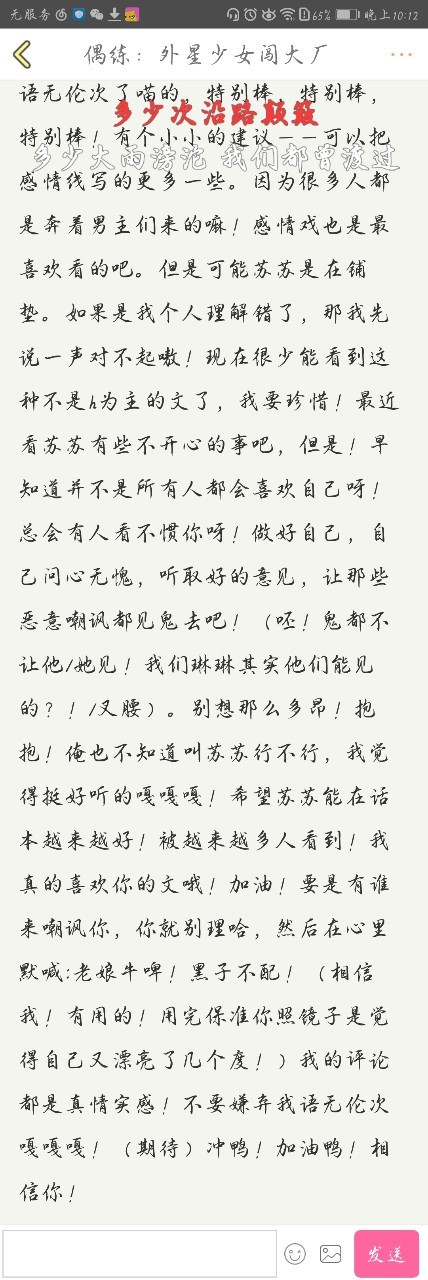 无服务
65%
晚上10:12
偶练：外星少女闯大厂
语无伦次了喵的，特别棒，特别棒，
多少次沿路颠簸
特别棒！有个小小的建议——可以把
多少大雨滂沱 我们都曾渡过
感情线写的更多一些。因为很多人都
是奔着男主们来的嘛！感情戏也是最
喜欢看的吧。但是可能苏苏是在铺
垫。如果是我个人理解错了，那我先
说一声对不起嗷！现在很少能看到这
种不是h为主的文了，我要珍惜！最近
看苏苏有些不开心的事吧，但是！早
知道并不是所有人都会喜欢自己呀！
总会有人看不惯你呀！做好自己，自
己问心无愧，听取好的意见，让那些
恶意嘲讽都见鬼去吧！（呸！鬼都不
让他/她见！我们琳琳其实他们能见
的？！/叉腰）。别想那么多昂！抱
抱！俺也不知道叫苏苏行不行，我觉
得挺好听的嘎嘎嘎！希望苏苏能在话
本越来越好！被越来越多人看到！我
真的喜欢你的文哦！加油！要是有谁
来嘲讽你，你就别理哈，然后在心里
默喊:老娘牛啤！黑子不配！（相信
我！有用的！用完保准你照镜子是觉
得自己又漂亮了几个度！）我的评论
都是真情实感！不要嫌弃我语无伦次
嘎嘎嘎！（期待）冲鸭！加油鸭！相
信你！
发送